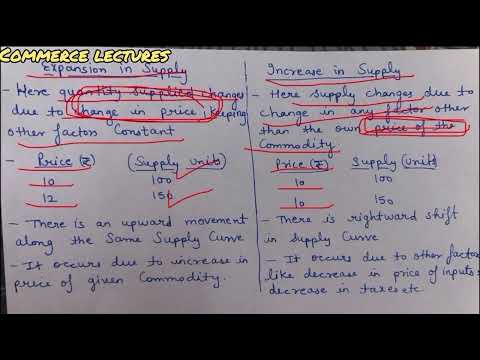 COMMERCE LECTURES
Expansion in Supply
- Here quantity supplied changes
due to change in price, keeping
other factors Constant
- Price (₹) (Supply units)
10 100
12 150
- There is an upward movement
along the Same Supply Curve
- It occurs due to increase in
price of given Commodity.
Increase in Supply
- Here supply changes due to
change in any factor other
than the own price of the
Commodity
Price (₹) Supply (units)
10 100
10 150
- There is rightward shift
in Supply Curve
- It occurs due to other factor
like decrease in price of inputs,
decrease in taxes etc.